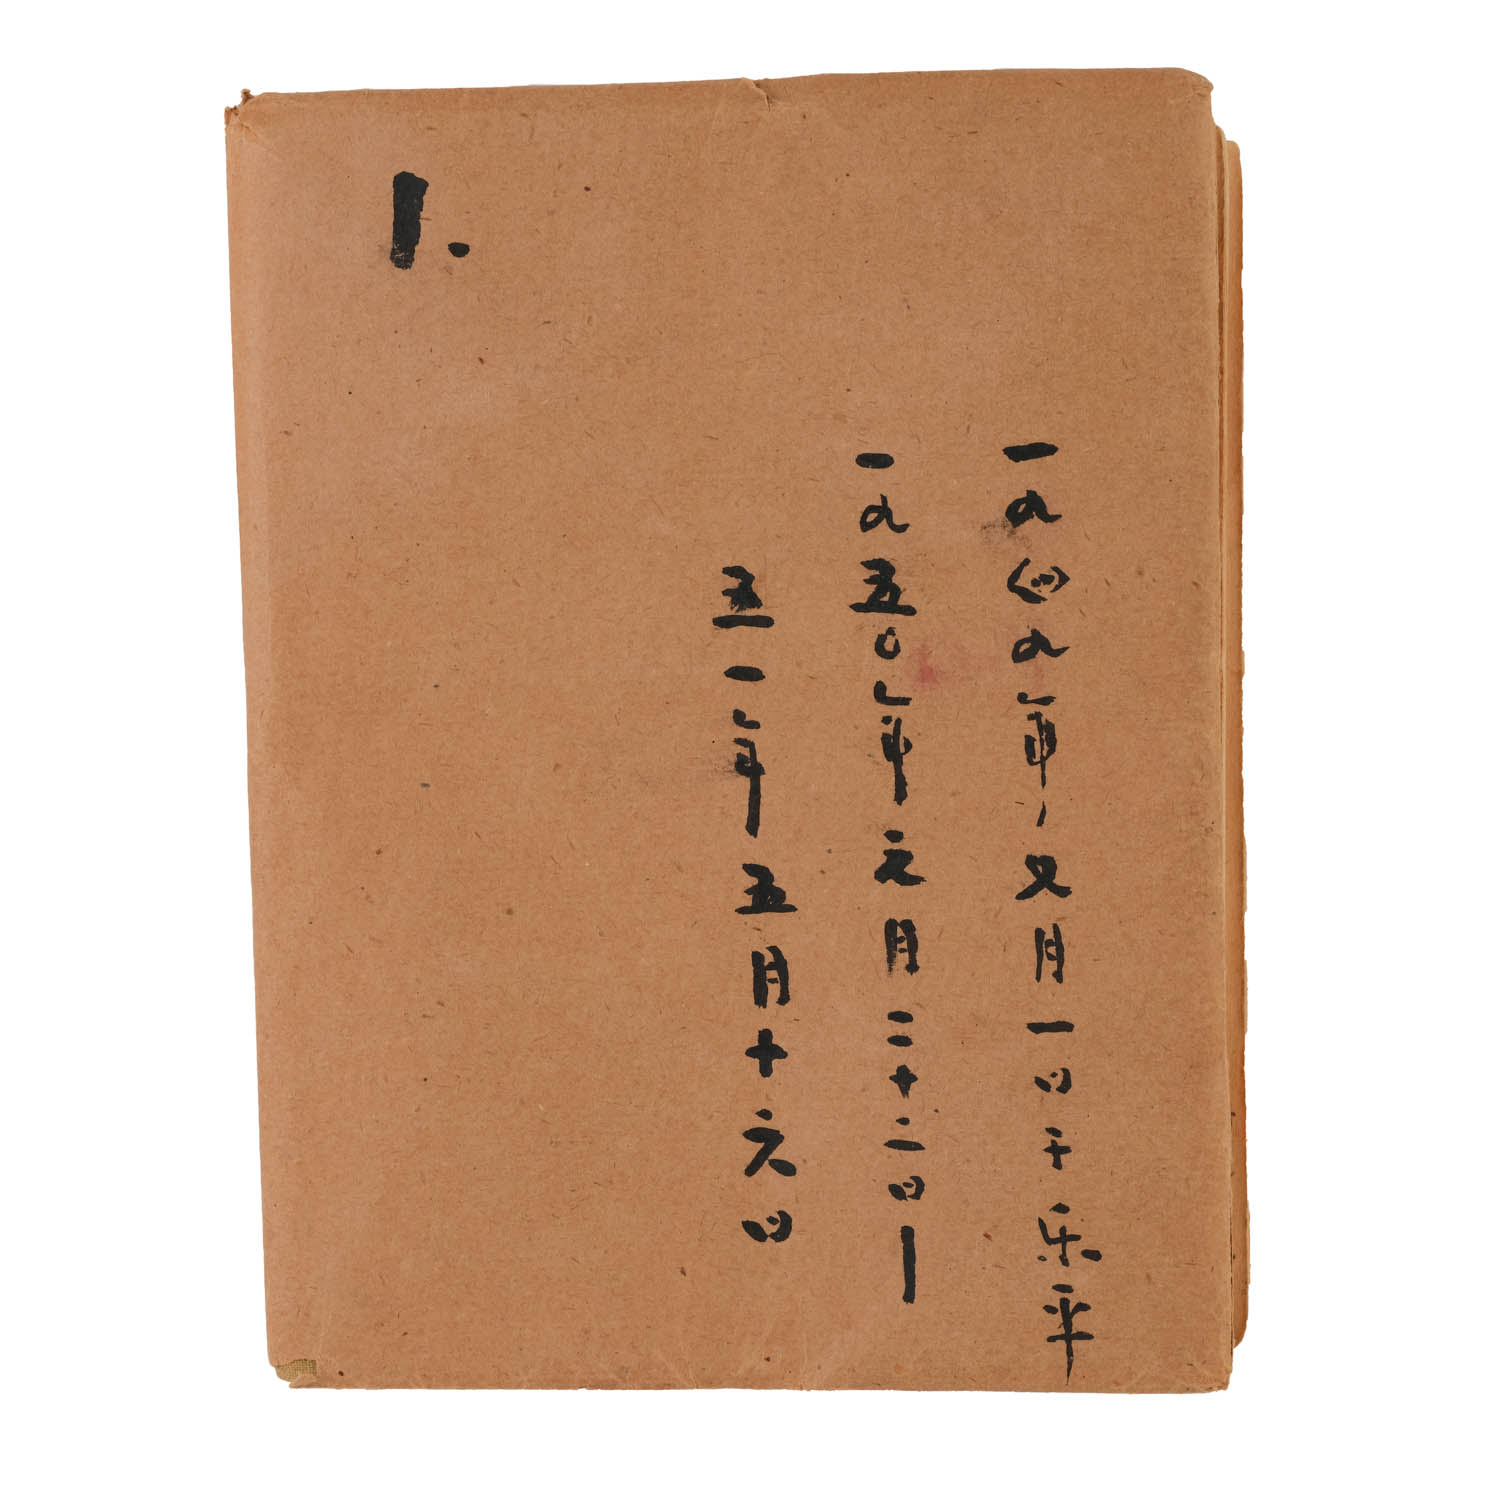 1.
一九四九年、又月一日于乐平
一九五〇年元月二十二日—
五一年五月十六日